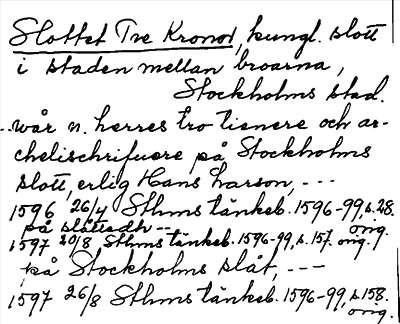 Slottet Tre Kronor, kungl. slott
i staden mellan broarna,
Stockholms stad.
..wår n. herres tro tienere och ar-
chelischrifuere på Stockholms
slott, erlig Hans Larson, ---
1596 26/4 Sthms tänkeb. 1596-99, s. 28.
på slåttedh -- orig.
1597 20/8 Sthms tänkeb. 1596-99, s. 157. orig.
på Stockholms slåt, ---
1597 26/8 Sthms tänkeb. 1596-99, s. 158.
orig.